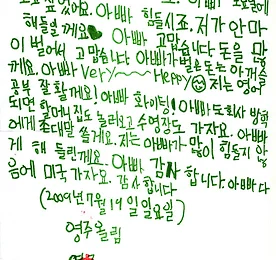 싶었어요. 아빠 힘들시죠. 저가 안마
해들릴께요 아빠 고맙습니다 돈을 많
이 벌어서 고맙습니다 아빠가 벌은 돈는 아껴쓸
께요. 아빠 Very Heppy 저는 영어
공부 잘 할께요! 아빠 화이팅! 아빠도 회사 방학
되면 할머니 집도 놀러가고 수영장도 가자요. 아빠
에게 존대말 쓸게요. 저는 아빠가 많이 힘들지 않
게 해 들릴께요. 아빠 감사합니다. 아빠 다
음에 미국 가자요. 감사합니다
(2009년 7월 19일 일요일)
영주올림